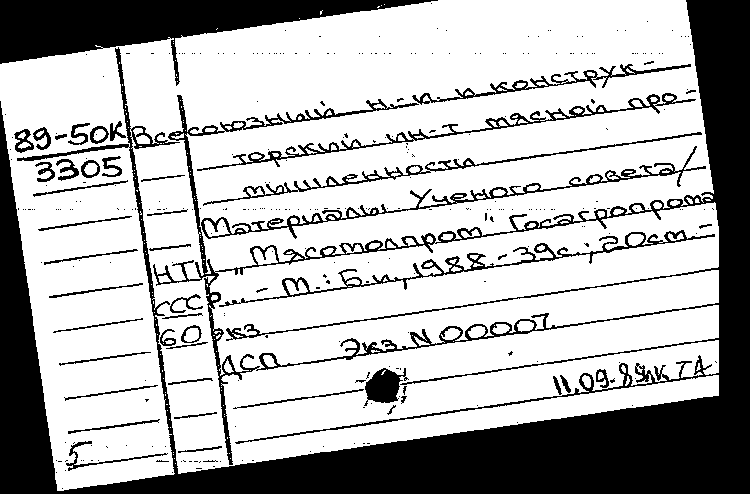 89-50К
3305
Всесоюзный н.-и. и конструк-
торский ин-т мясной про-
мышленности
Материалы Ученого совета/
НТЦ "Мясомолпром" Госагропрома
СССР... - М.: Б.и., 1988. - 39с.; 20см. -
60 экз.
ДСП Экз. N 00007.
11.09-89
5